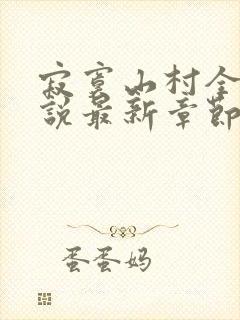 寂寞山村全
說最新章節
蛋蛋妈